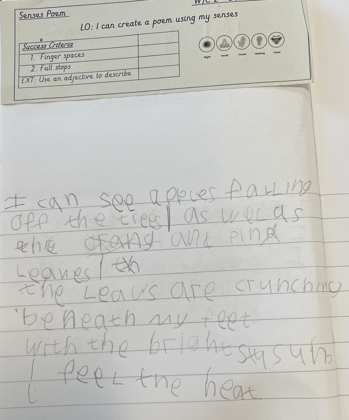 Senses Poem
LO: I can create a poem using my senses
Success Criteria
1. Finger spaces
2. Full stops
EXT: Use an adjective to describe
I can see apples falling
off the trees as well as
the and
Leaves
the Leavs are crunching
beneath my feet
with the bright sun
I feel the heat